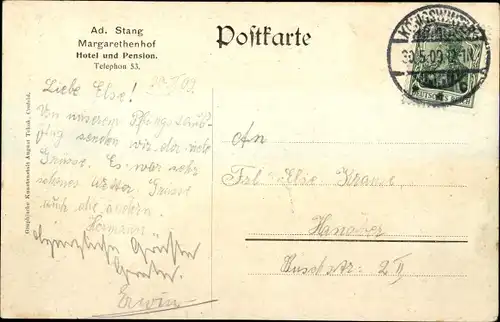 Ad. Stang
Margarethenhof
Hotel und Pension.
Telephon 53.
Postkarte
KÖNIGSWINTER
30.5.09
DEUTSCHES
30./5 09.
Liebe Else!
Von unserem Pfingstausflug
senden wir dir viele
Grüsse. Es war sehr
schönes Wetter. Grüsse
auch die andern.
Hermann
Herzliche Grüße
Erwin
An
Frl. Else Krause
Hanover
2 II
Graphische Kunstanstalt August Tchak, Crefeld.